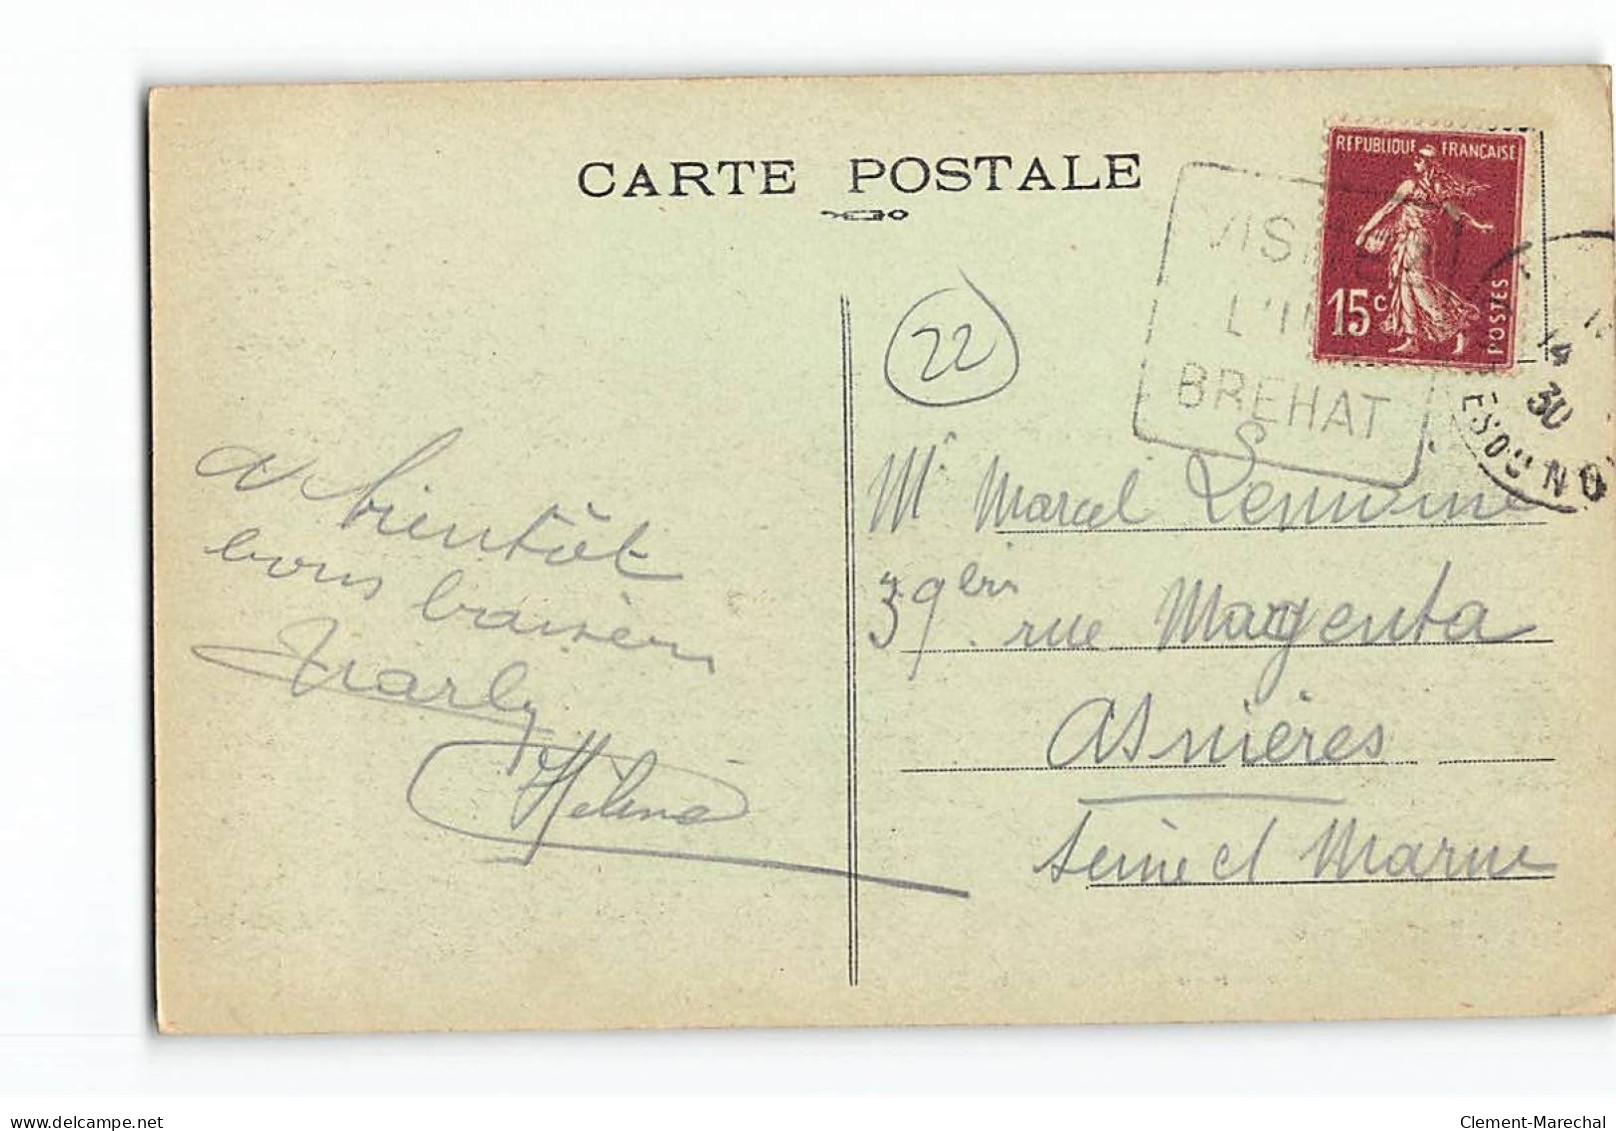 CARTE POSTALE
REPUBLIQUE FRANÇAISE
15c
POSTES
VISITEZ
L'I
BREHAT
14
30
22
A bientôt
bons baisers
Marly
Hélène
Mr Marcel Lemoine
39 rue Magenta
Asnières
Seine et Marne
delcampe.net
Clement-Marechal